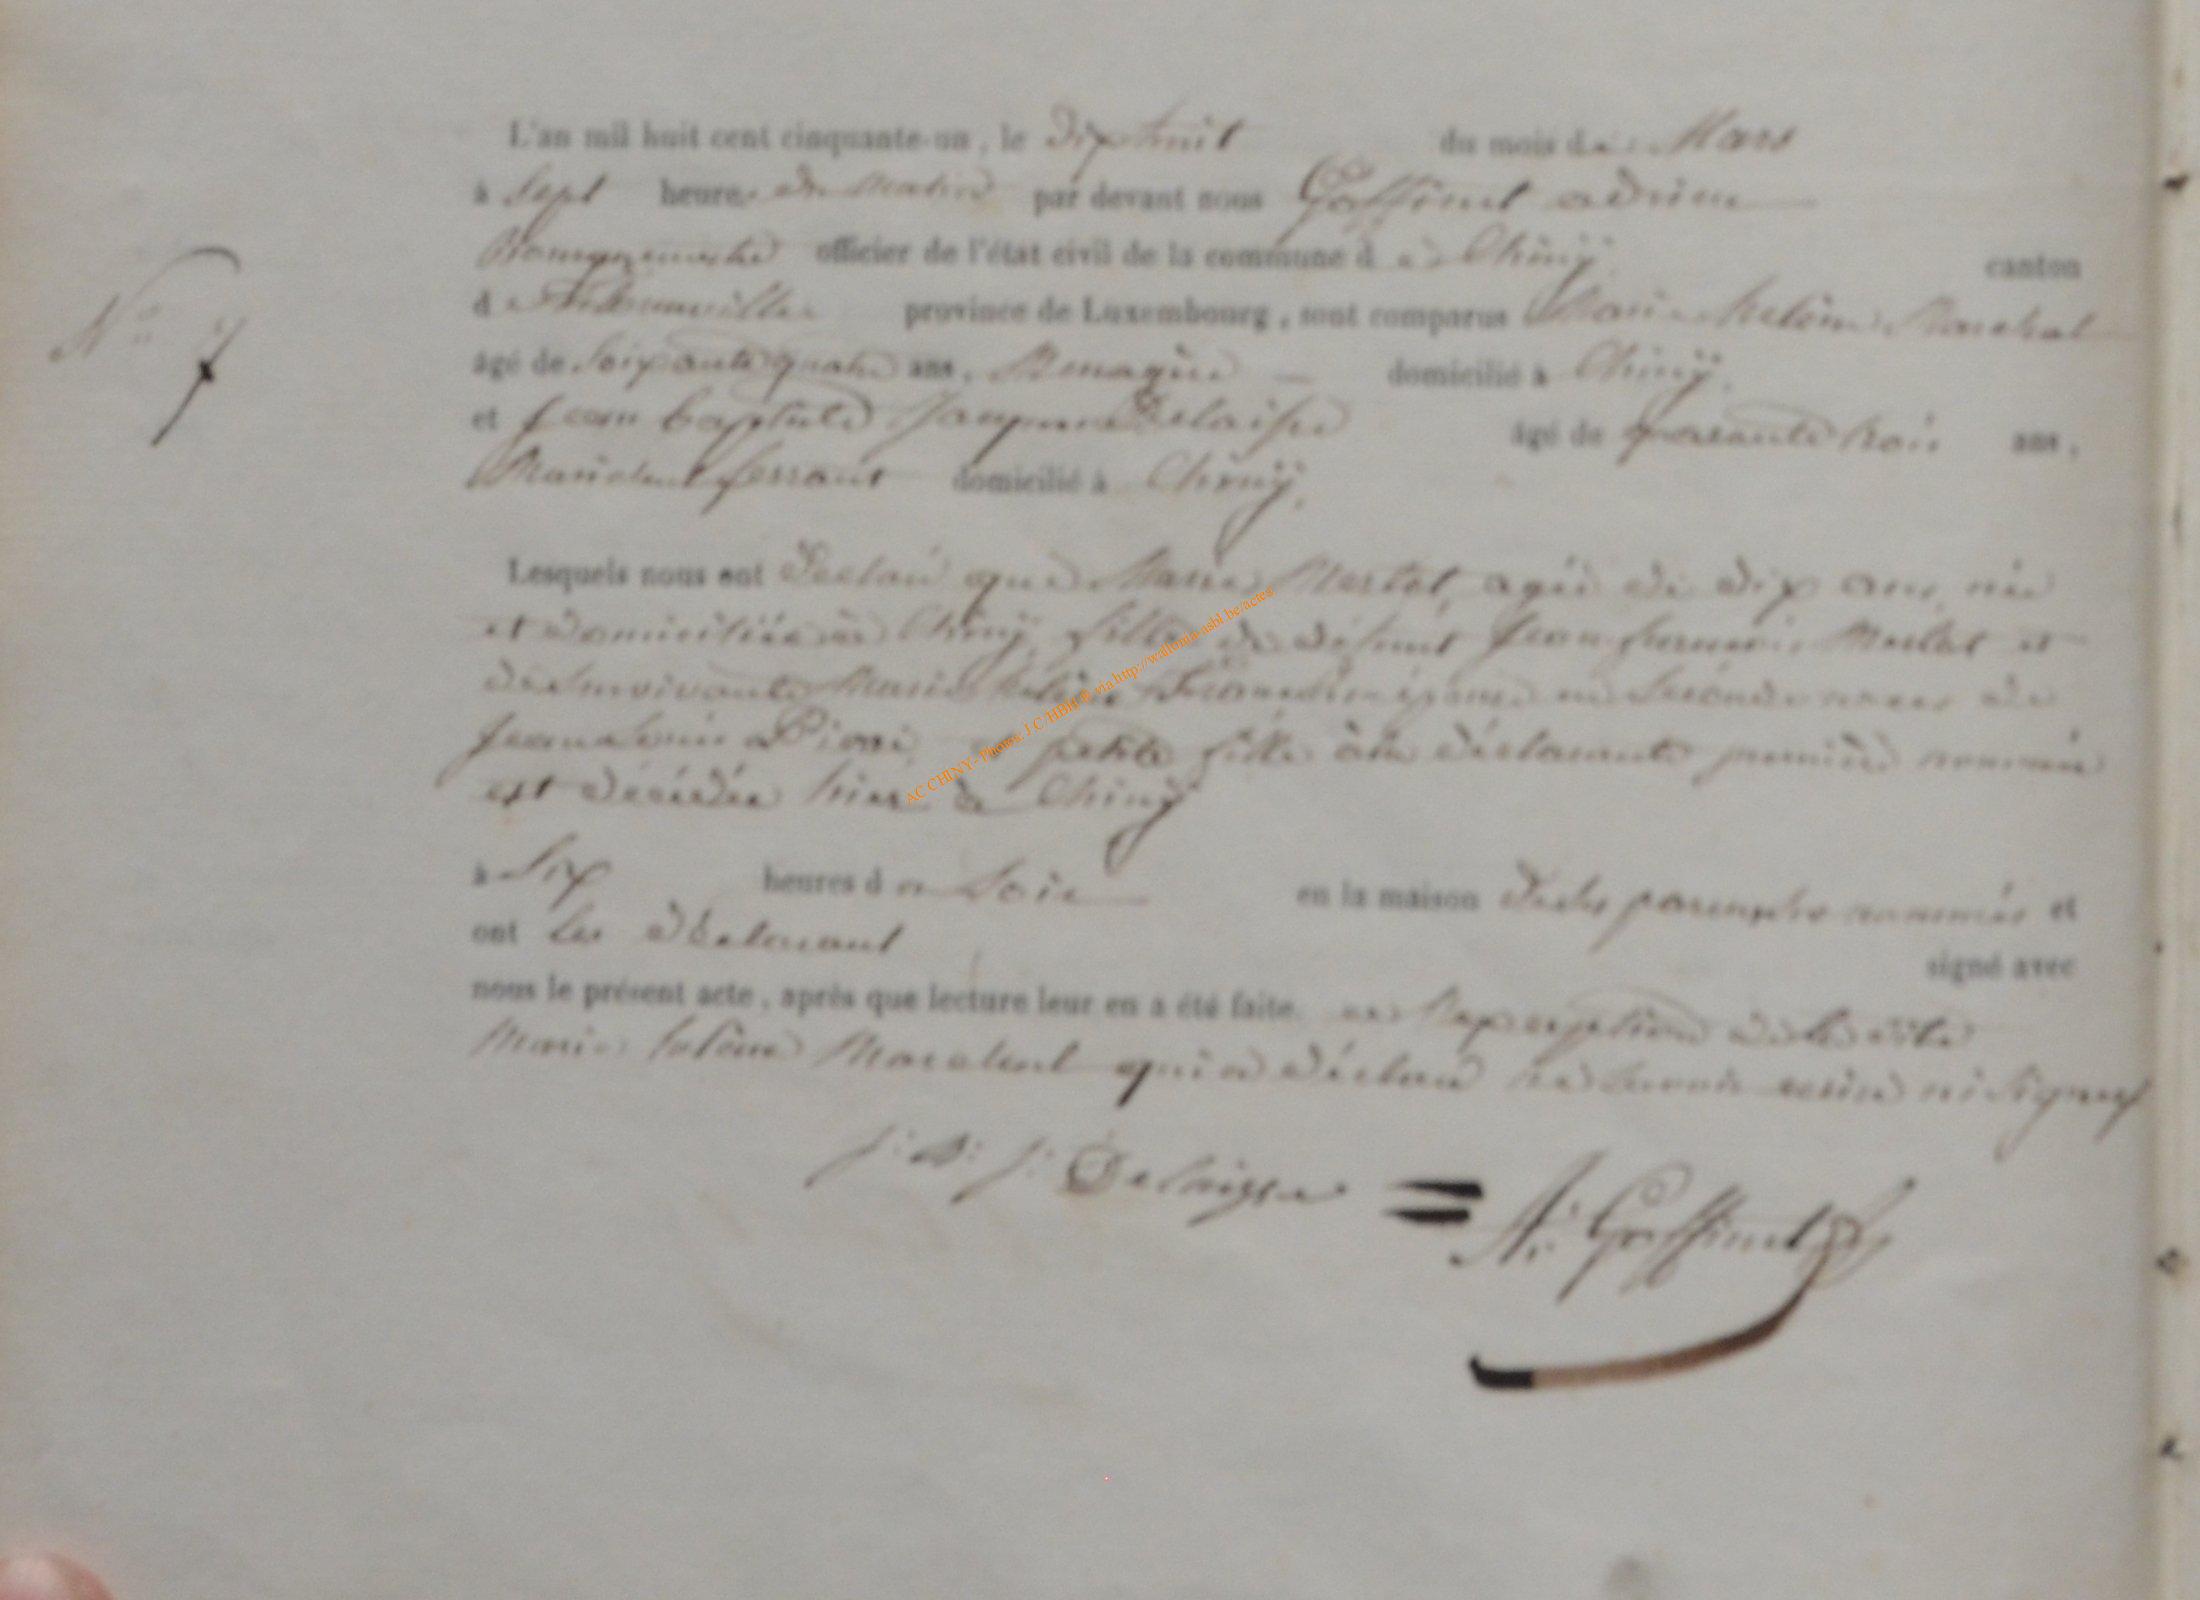 L'an mil huit cent cinquante-un, le dix huit du mois de Mars
à Sept heures du Matin par devant nous Goffinet adrien
Bourgmestre officier de l'état civil de la commune d e Chiny canton
d e province de Luxembourg, sont comparus Marie helène Marechal
âgé de Soixante quatre ans, Menagère domicilié à Chinÿ,
et jean baptiste Delaisse âgé de quarante trois ans,
Marechal ferrant domicilié à Chinÿ,
N° 7
Lesquels nous ont déclaré que Marie Merlot, agée de dix ans, née
et domiciliée à Chinÿ, fille de défunt jean Merlot et
de Survivante Marie helène épouse en Seconde noces de
petite fille à la déclarante première nommée
est décédée hier à Chinÿ
à Six heures d u Soir en la maison des parents nommés et
ont les déclarant signé avec
nous le présent acte, après que lecture leur en a été faite. a l'exception de la dite
Marie helène Marechal qui a déclaré ne Savoir écrire ni Signer
j: B: j: Delaisse = A: Goffinet
AC CHINY - Photos J C HBlg® via http://wallonia-asbl.be/actes